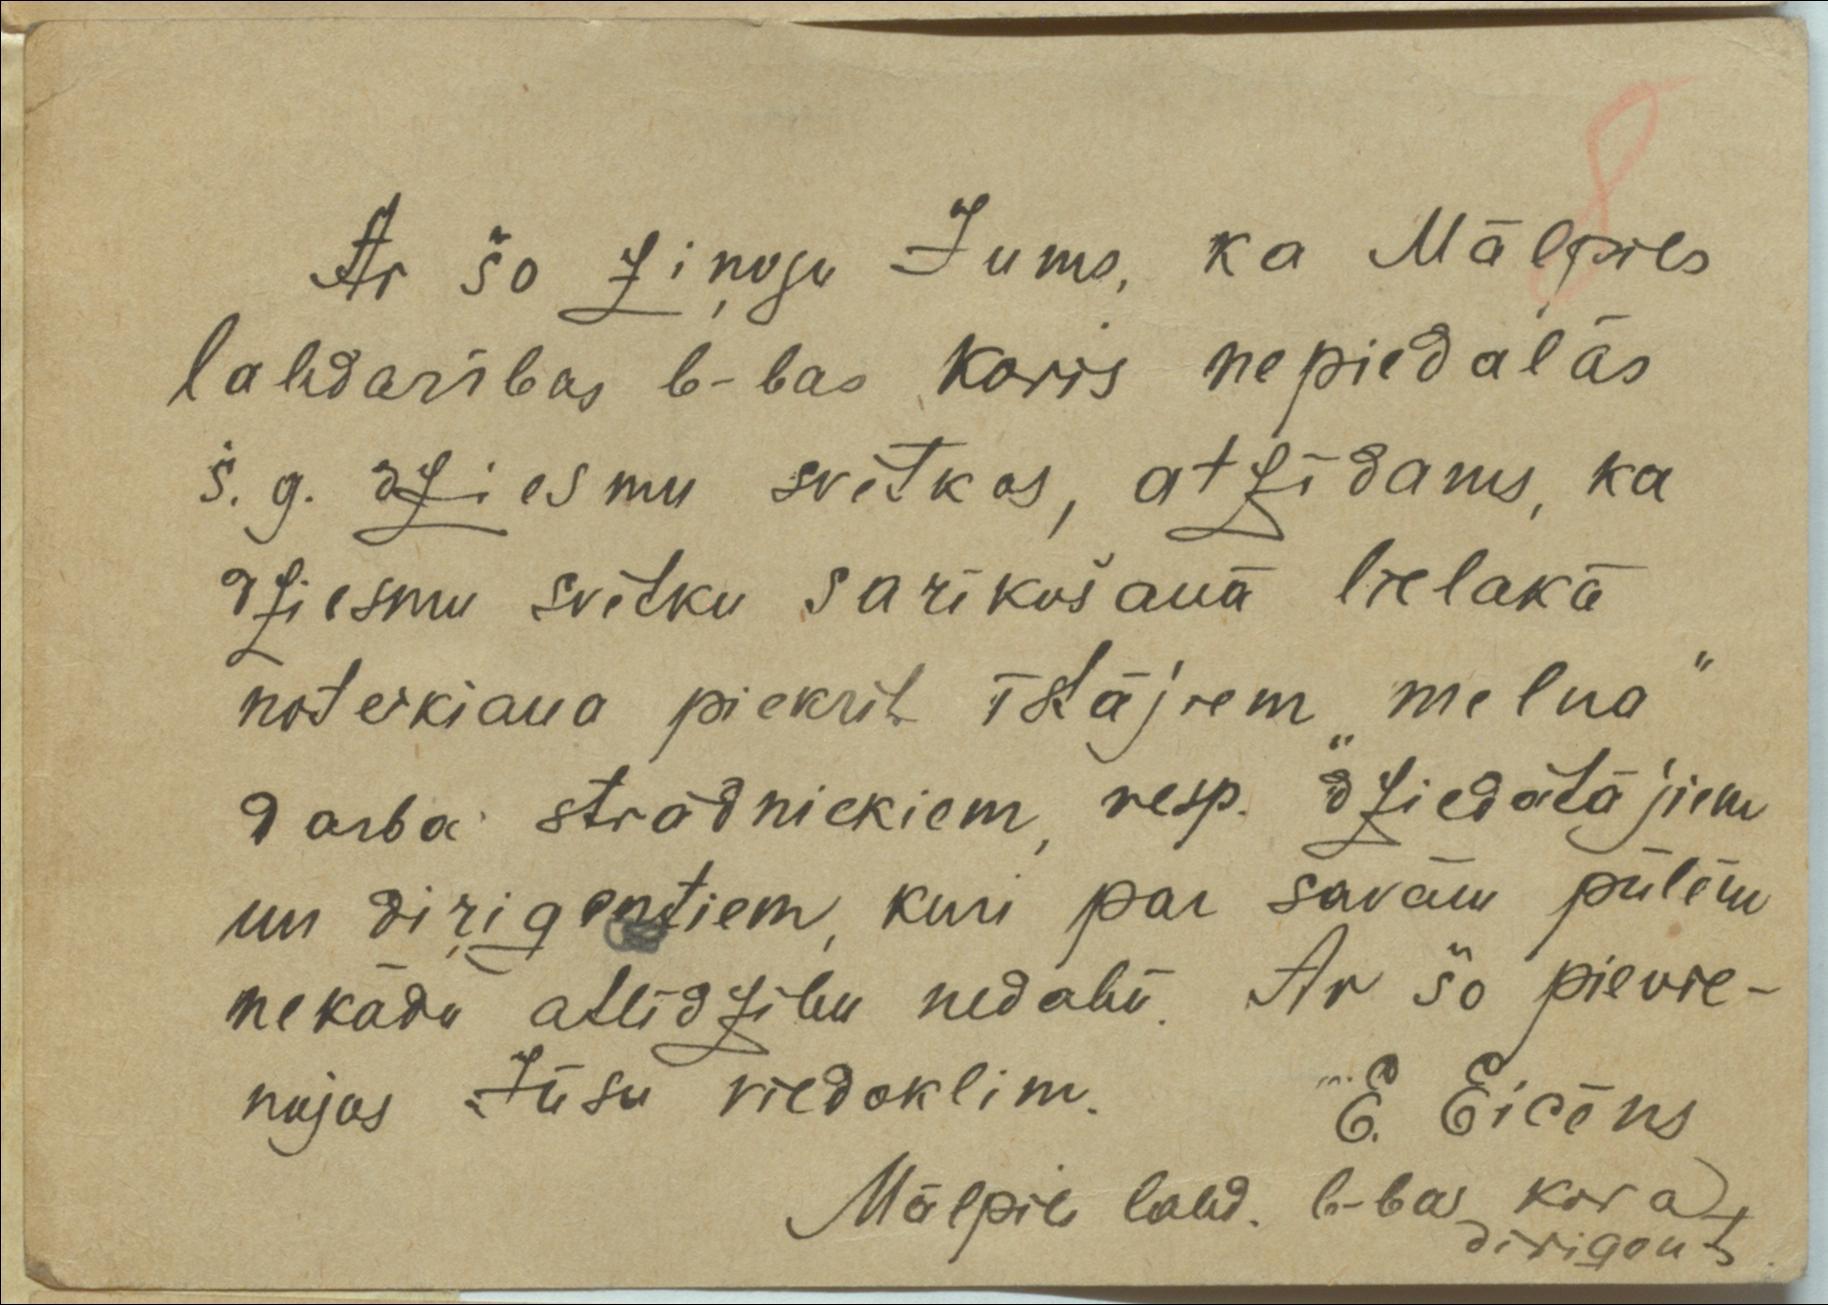 8
Ar šo ziņoju Jums, ka Mālpils
labdarības b-bas koris nepiedalās
š. g. dziesmu svētkos, atzīdams, ka
dziesmu svētku sarīkošanā lielākā
noteikšana piekrīt īstajiem „melnā“
darba strādniekiem, resp. "dziedātājiem
un diriģentiem, kuri par savām pūlēm
nekādu atlīdzību nedabū. Ar šo pievie-
nojos Jūsu viedoklim. E. Eicēns
Mālpils labd. b-bas kora
diriģents